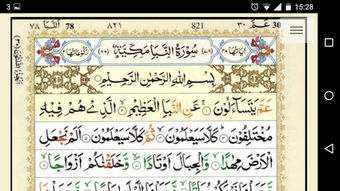 3 15:28
٧٨ اَلنَّبَأ 78 ٨٢١ 821 ٣٠ عَمَّ 30
سُوْرَةُ النَّبَاِ مَكِّيَّةٌ
بِسْمِ اللّٰهِ الرَّحْمٰنِ الرَّحِيْمِ
عَمَّ يَتَسَآءَلُوْنَ ۝ عَنِ النَّبَاِ الْعَظِيْمِ ۝ الَّذِيْ هُمْ فِيْهِ
مُخْتَلِفُوْنَ ۝ كَلَّا سَيَعْلَمُوْنَ ۝ ثُمَّ كَلَّا سَيَعْلَمُوْنَ ۝ اَلَمْ نَجْعَلِ
الْاَرْضَ مِهٰدًا ۝ وَّالْجِبَالَ اَوْتَادًا ۝ وَّخَلَقْنٰكُمْ اَزْوَاجًا ۝